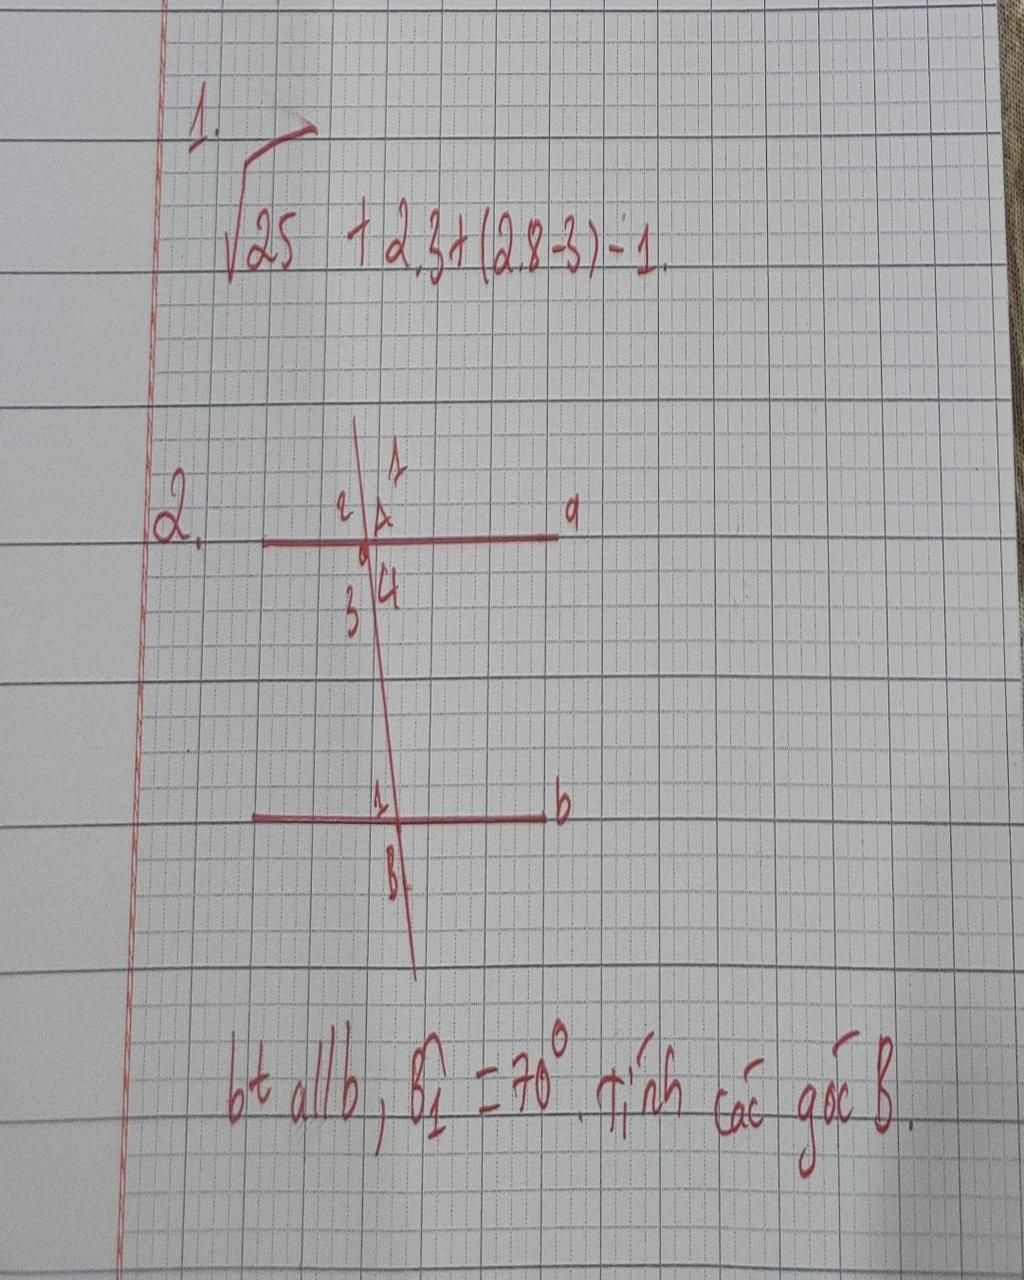 1.
√25 + 2.3 + (2.8 - 3) - 1.
2.
1
2 A a
3 4
1 b
B
bt a//b, B̂₁ = 70⁰. Tính các góc B.